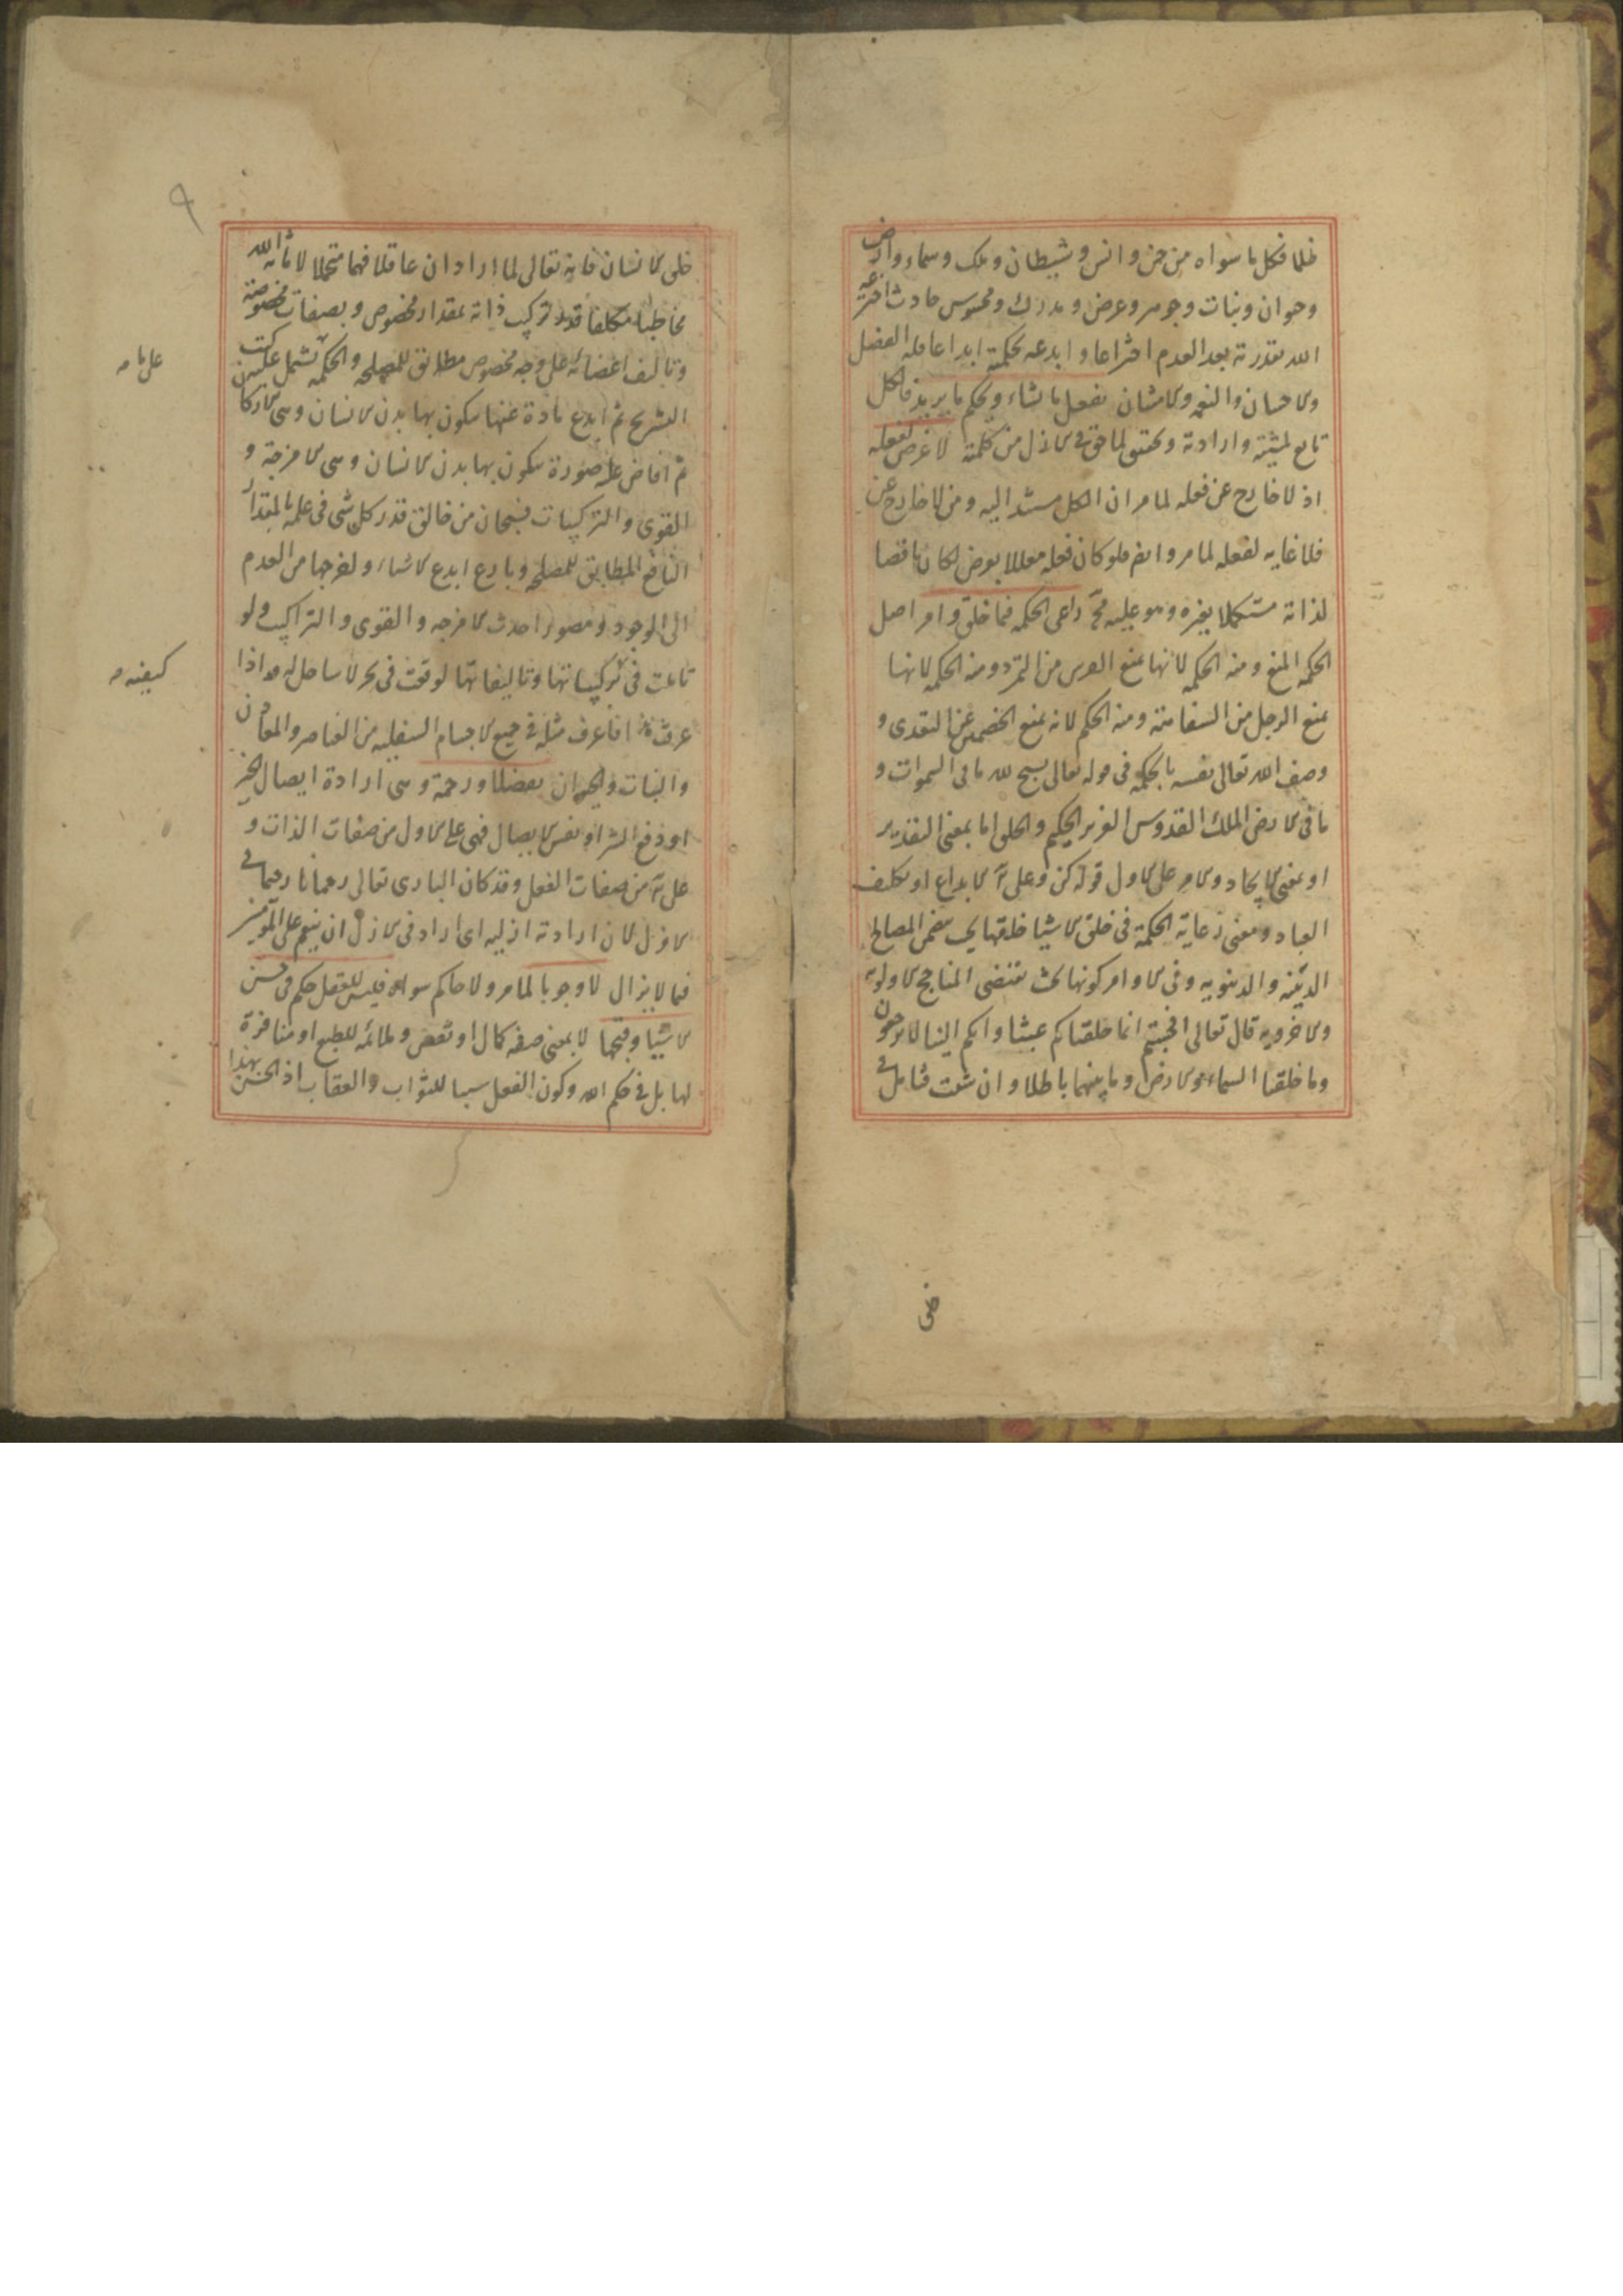 ظلما فكل ما سواه من جن وانس وشيطان وملك وسماء وارض
وحيوان ونبات وجوهر وعرض ومدرك ومحسوس حادث اخترعه
الله بقدرته بعد العدم اختراعا وابدعه بحكمته ابداعا فله الفضل
والاحسان والنعم والامتنان يفعل ما يشاء ويحكم ما يريد فالكل
تابع لمشيته وارادته من كلمته لا غرض لفعله
اذ لا خارج عن فعله لما مر ان الكل مستند اليه ومن لا خارج عن
فلا غايه لفعله لما مر وايضا فلو كان فعله معللا بغرض لكان ناقصا
لذاته مستكملا بغيره وهو عليه مح راعى الحكمه فيما خلق وامر اصل
الحكمه المنع ومنه الحكمه لانها تمنع الفرس من التمرد ومنه الحكمه لانها
تمنع الرجل من السفاهة ومنه الحكم لانه يمنع الخصمين عن التعدى و
وصف الله تعالى نفسه بالحكمه فى قوله تعالى يسبح لله ما فى السموات و
ما فى الارض الملك القدوس العزيز الحكيم والخلق اما بمعنى التقدير
او بمعنى الايجاد والامر على الاول قوله كن وعلى الابداع او تكليف
العباد ومعنى رعاية الحكمة فى خلق الاشيا خلقها بحيث يتضمن المصالح
الدينيه والدنيويه وفى الاوامر كونها بحيث تقتضى المناجح الاوليه
والاخرويه قال تعالى افحسبتم انما خلقناكم عبثا وانكم الينا لا ترجعون
وما خلقنا السماء والارض وما بينهما باطلا وان شئت فتامل فى
خلق الانسان فانه تعالى لما اراد ان عاقلا فهما متحملا لامانة الله
مخاطبا مكلفا قدر تركيب ذاته بمقدار مخصوص وبصفات مخصوصة
وتاليف اعضائه على وجه مخصوص مطابق للمصلحه والحكمه تشمل عليه كتب
التشريح ثم ابدع مادة عنها يتكون بها بدن الانسان وهى الاركان
ثم افاض عليه صورة يتكون بها بدن الانسان وهى الامزجة و
القوى والتركيبات فسبحان من خالق قدر كل شى فى علمه بالمقدار
النافع المطابق للمصلحه وبارع ابدع الاشياء واخرجها من العدم
الى الوجود ومصور احدث الامزجه والقوى والتراكيب ولو
تاملت فى تركيباتها وتاليفاتها لوقعت فى بحر لا ساحل له واذا
عرفت هذا فاعرف مثله فى جميع الاجسام السفليه من العناصر والمعادن
والنبات والحيوان تفضلا ورحمة وهى ارادة ايصال الخير
او دفع الشر او نفس الايصال فهى على الاول من صفات الذات و
على من صفات الفعل وقد كان البارى تعالى رحمانا رحيما فى
الازل لان ارادته ازليه اى اراد فى الازل ان ينعم على المؤمنين
فيما لا يزال لا وجوبا لما مر ولا حاكم سواه فليس للعقل حكم فى حسن
الاشيا وقبحها لا بمعنى صفه كمال او نقص وملائمه للطبع او منافرة
لها بل فى حكم الله وكون الفعل سببا للثواب والعقاب اذ الحسن بهذا
على ما مر
كيفيته مر
خلق